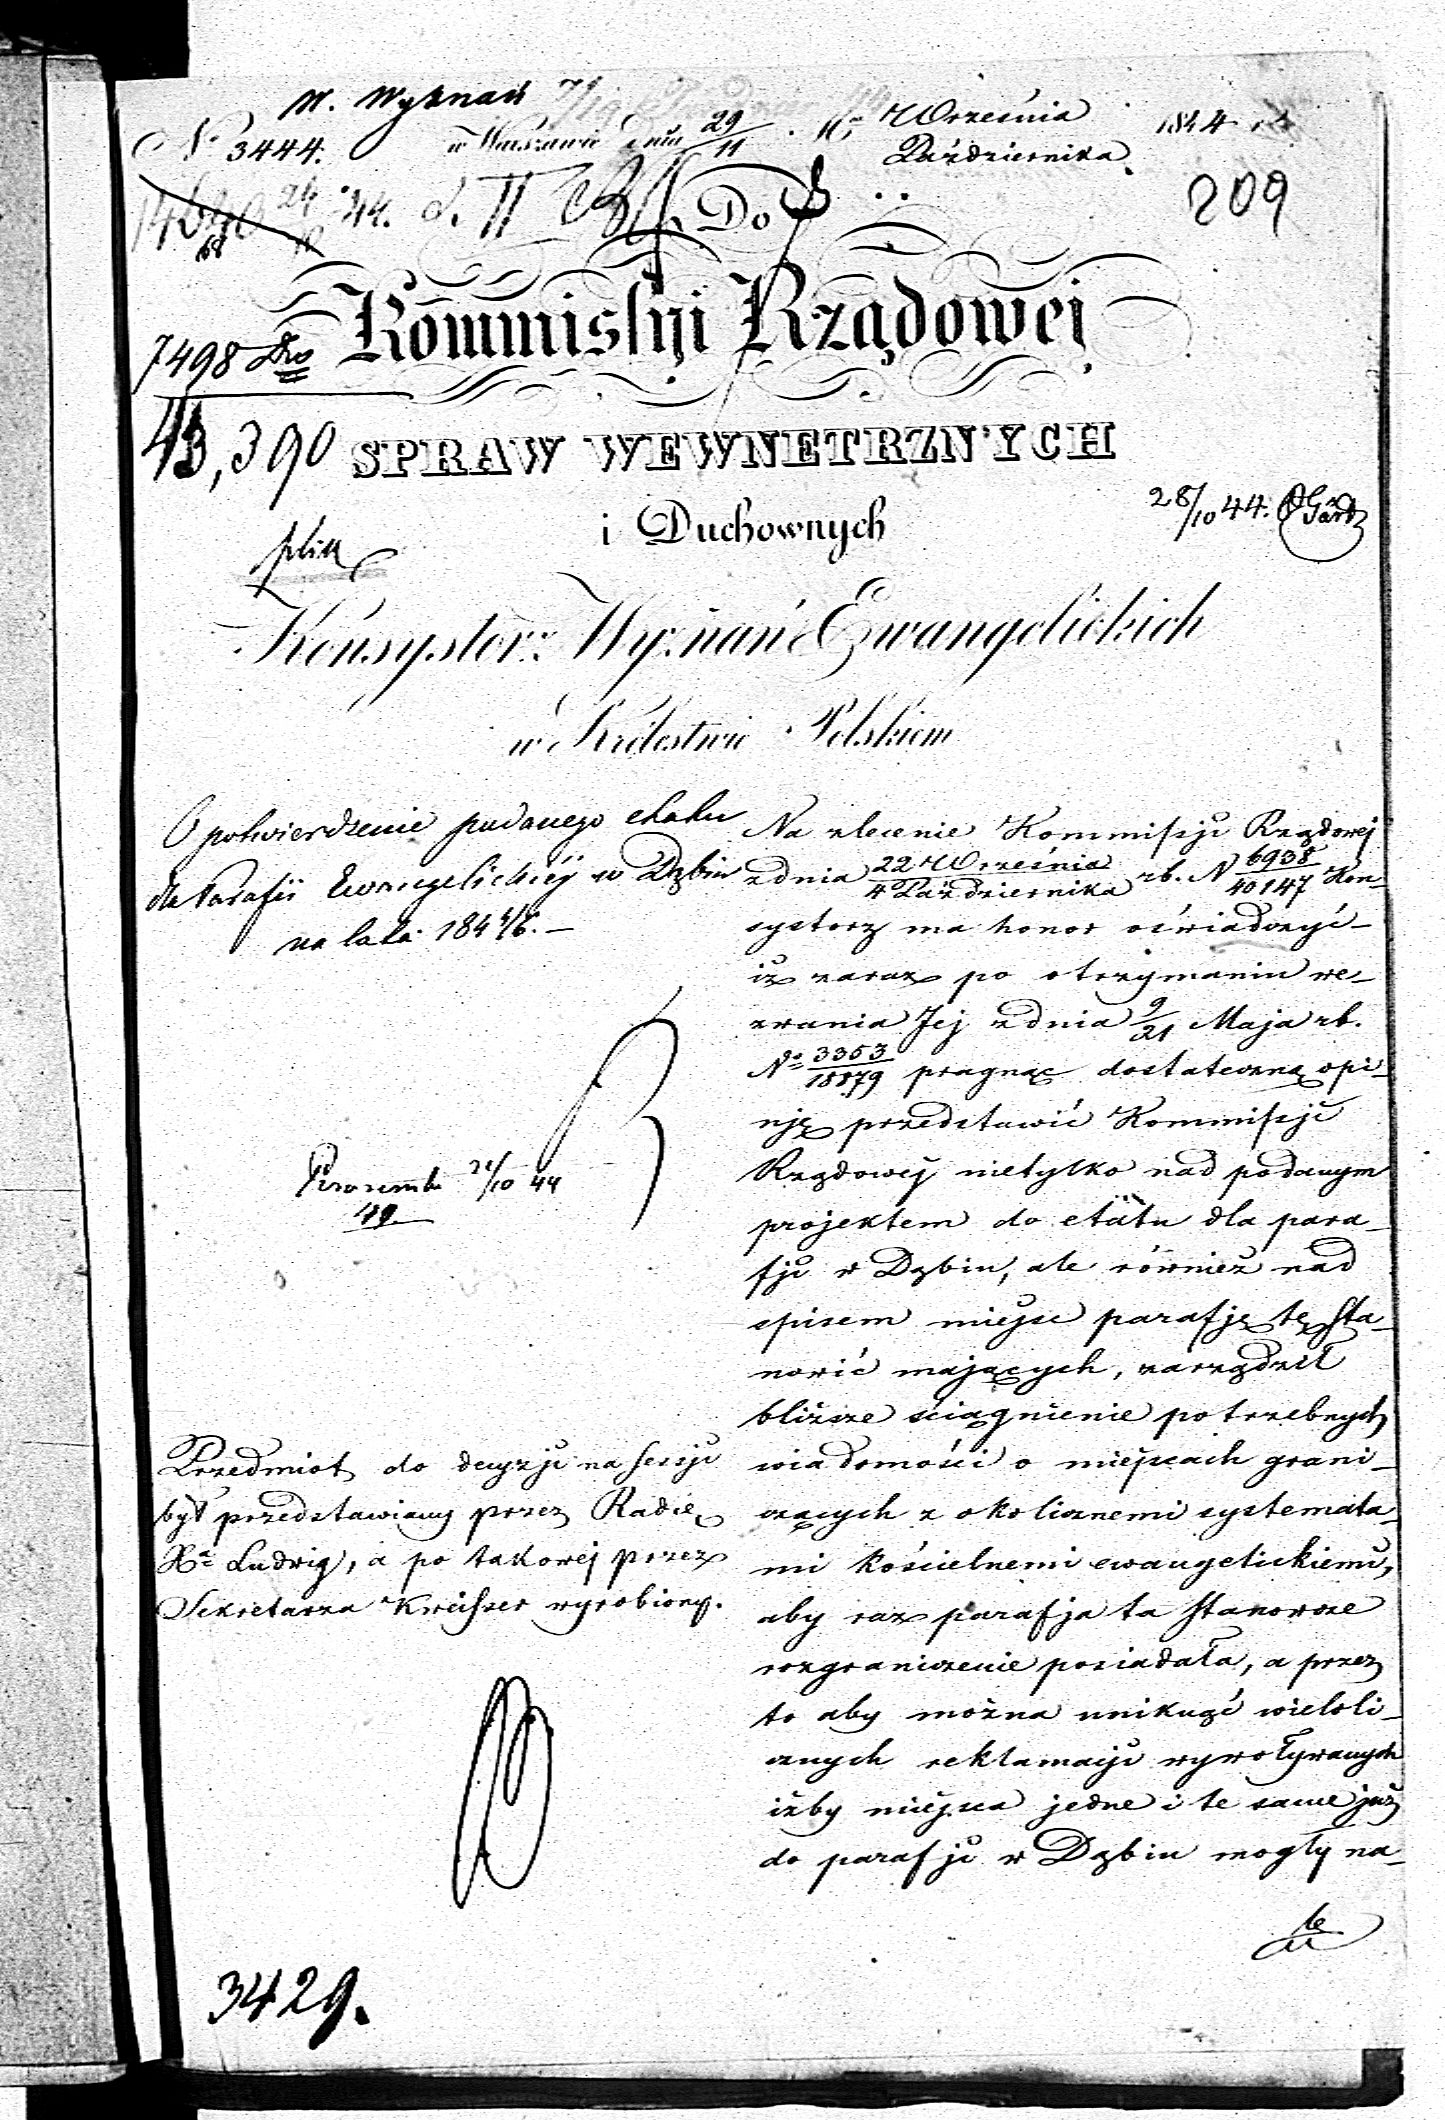 W. Wyznań
N° 3444.
w Warszawie dnia 29/11 Września Października 1844 r.
209
44. d. II Do
7498
Kommissyi Rządowej
43,390 SPRAW WEWNETRZNYCH
i Duchownych
28/10 44.
Konsystorz Wyznań Ewangelickich
w Królestwie Polskiem
O potwierdzenie podanego etatu
dla Parafii Ewangelickiéj w Dąbiu
na lata 184 4/6. –
21/10 44
49.
Przedmiot do decyzji na sessji
był przedstawiany przez Radcę
Xa Ludwig, a po takowej przez
Sekretarza Kreisser wyrobiony.
3429.
Na zlecenie Kommissji Rządowej
z dnia 22 Września / 4 Października rb. N 6938/40147 Kon-
systorz ma honor oświadczyć
iż zaraz po otrzymaniu we-
zwania Jej z dnia 9/21 Maja rb.
No 3353/18879 pragnąc dostateczną opi-
nję przedstawić Kommissji
Rządowej nietylko nad podanym
projektem do etatu dla para-
fji w Dąbiu, ale również nad
spisem miejsc parafję tę sta-
nowić mających, zarządził
bliższe ściągnienie potrzebnych
wiadomości o miejscach grani-
czących z okolicznemi systemata-
mi kościelnemi ewangelickiemi,
aby raz parafja ta stanowcze
rozgraniczenie posiadała, a przez
to aby można uniknąć wieloli-
cznych reklamacji wywoływanych
iżby miejsca jedne i te same już
do parafji w Dąbiu mogły na-